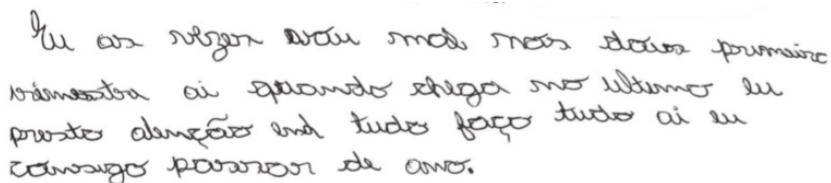 Eu as vezes vou mal nos dous primeiro
vimestra ai quando chega no ultimo eu
presto atenção end tudo faço tudo ai eu
consigo passar de ano.